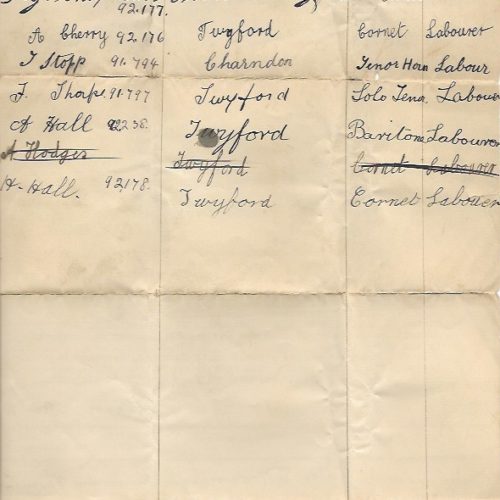 92.177.
A Cherry 92176 Twyford Cornet Labourer
T Stopp 91.794 Charndon Tenor Horn Labour
F. Tharp 91.797 Twyford Solo Tenor Labour
A Hall 92238. Twyford Baritone Labourer
A Hodges Twyford Cornet Labourer
H. Hall. 92,178. Twyford Cornet Labouer